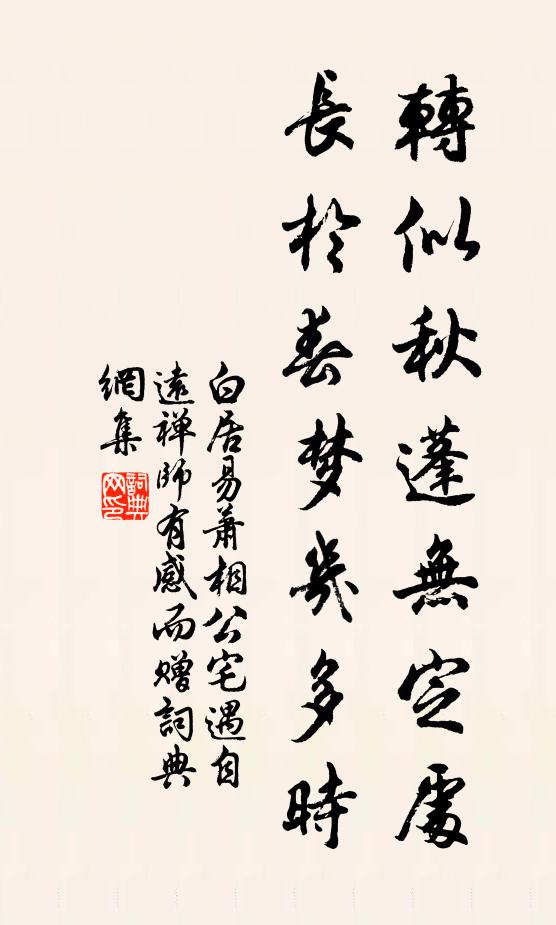 轉似秋蓬無定處
長於春梦幾多時
白居易蕭相公宅遇自
遠禅師有感而赠詞典
網集
詞典
网印